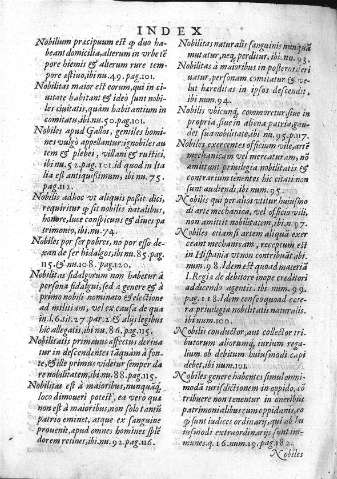 INDEX
Nobilium præcipuum est q̃ duo ha-
beant domicilia, alterum in vrbe tẽ
pore hiemis & alterum rure tem-
pore æstiuo, ibi nu. 49. pag. 101.
Nobilitas maior est eorum, qui in ci-
uitate habitant & ideò sunt nobi-
les ciuitatis, quàm habitantium in
comitatu. ibi nu. 50. pag. 101.
Nobiles apud Gallos, gentiles homi-
nes vulgò appellantur: ignobiles au
tem & plebei, villani & rustici,
ibi nu. 52. pag. 101. id quod in Ita
lia est antiquissimum, ibi nu. 75.
pag. 112.
Nobilis adhoc vt aliquis possit dici,
requiritur q̃ sit nobilis natalibus,
honore, luce conspicuus & diues pa
trimonio, ibi nu. 74.
Nobiles por ser pobres, no por esso de-
xan de ser hidalgos, ibi nu. 85. pag.
115. & nu. 108. pag. 120.
Nobilitas fidalgorum non habetur à
persona fidalgui, sed a genere & à
primo nobili nominato & electione
ad militiam, vel ex causa de qua
in l. 6. tit. 27. par. 2. & aliis legibus
hic allegatis, ibi nu. 86. pag. 115.
Nobilitatis primæuus assectus deriua
tur in descendentes tãquàm à fon-
te, & iste primus videtur semper da
re nobilitatem, ibi nu. 88. pag. 115.
Nobilitas est à maioribus, nunquàq̃
loco dimoueri potest, ea vero quæ
non est à maioribus, non solo tantũ
patrio eminet, atque ex sanguine
prouenit, apud omnes homines splẽ
dorem retinet, ibi nu. 92. pag. 116.
Nobilitas naturalis sanguinis nunquã
mutatur, neq; perditur, ibi nu. 93.
Nobilitas à maioribus in posteros deri
uatur, personam comitatur & ve-
lut hæreditas in ipsos descendit.
ibi num. 94.
Nobilis vbicunq; commoretur, siue in
propria, siue in aliena patria, gau-
det sua nobilitate, ibi nu. 95. p. 117.
Nobiles exercentes officium vile, artẽ
mechanicam vel mercaturam, nõ
amittunt priuilegia nobilitatis &
contrarium tenentes hic citati non
sunt audiendi. ibi num. 95.
Nobilis qui per alios vtitur huiusmo
di arte mechanica, vel officio vili,
non amittit nobilitatem, ibi nu. 97.
Nobiles etiamsi artem aliqua exer-
ceant mechanicam, receptum est
in Hispania vt non contribuãt, ibi
num. 98. Idem est quoad materiã
l. Regiæ de debitore impẽ creditori
adducendo agentis. ibi num. 99.
pag. 118. Idem consequẽ quoad cæte-
ra priuilegia nobilitatis naturalis.
ibi num. 100.
Nobilis conductor, aut collector tri-
butorum aliorumq; iurium rega-
lium ob debitum huiusmodi capi
debet, ibi num. 101.
Nobiles egenere habentes simul omni-
modã iurisdictionem in oppido, cõ
tribuere non tenentur in oneribus
patrimonialibus cum oppidanis, eo
q̃ sunt iudices ordinarij, qui ab hu
iusmodi extraordinarijs sunt im-
munes. q. 16. num. 19. pag. 182.
Nobiles